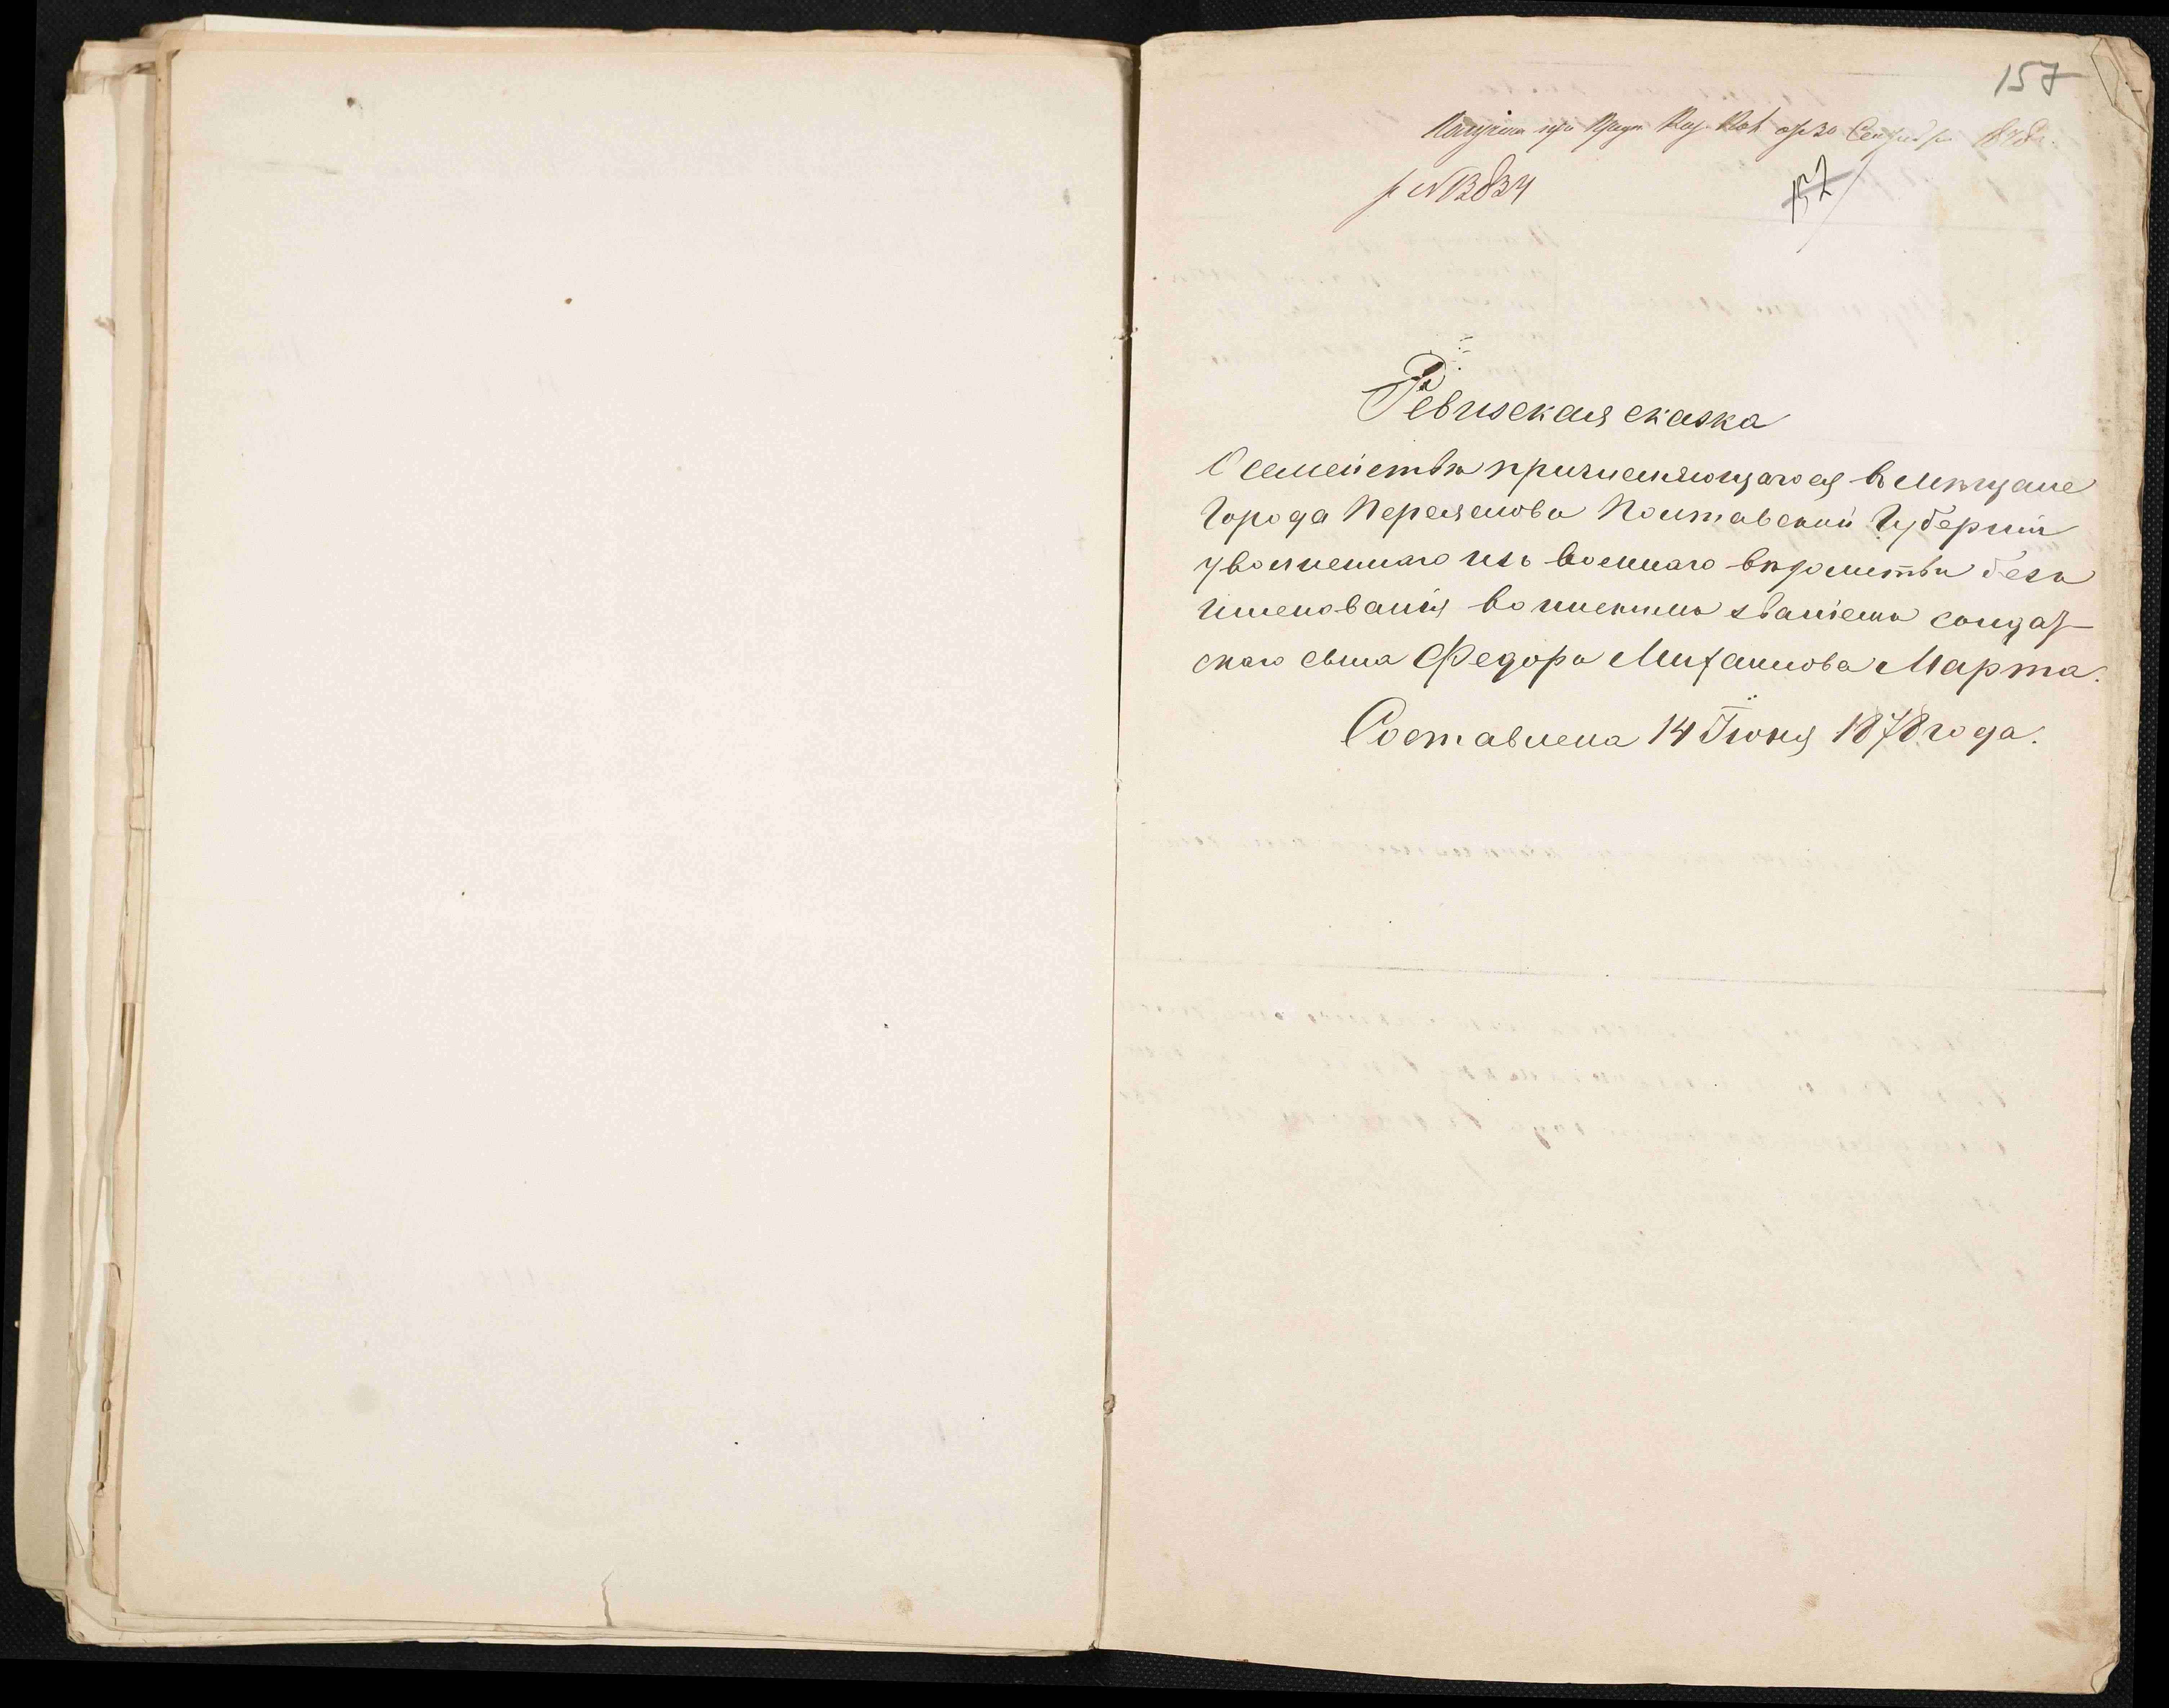 157
Получена при Предп. Каз. Пал. отъ 30 Сентября 1878 г.
за №13834
152
Ревизская сказка
О семействѣ причисляющагося въ мѣщане
Города Переяслова Полтавской Губерніи
уволненнаго изъ военнаго вѣдомства безъ
именованія воинскимъ званіемъ солдат-
скаго сына Федора Михайлова Марта.
Составлена 14 Іюня 1878 года.